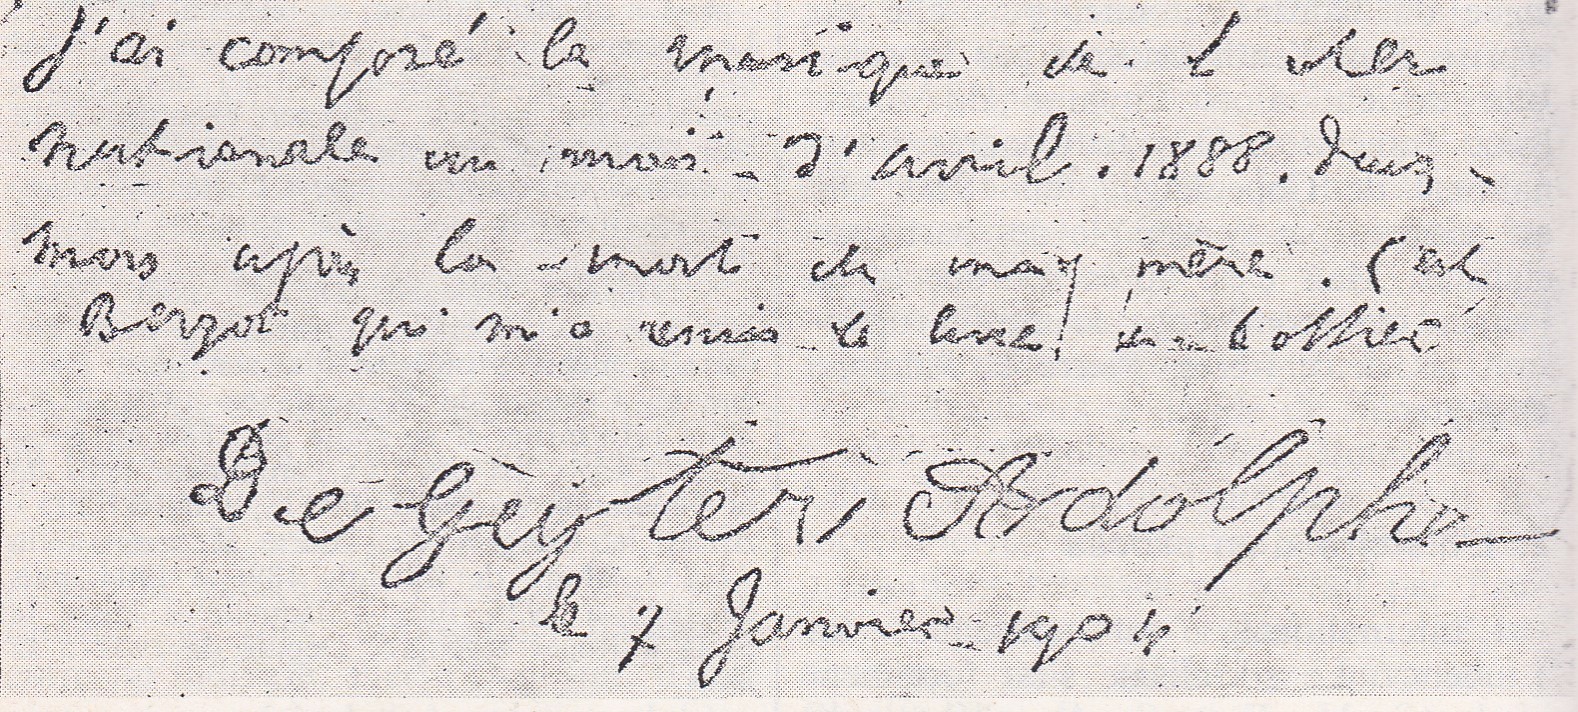 J'ai composé la musique de l'inter
nationale au mois d'avril. 1888. deux
mois après la mort de ma mère. C'est
Bergot qui m'a remis le livre
De Geyter Adolphe
le 7 Janvier 1904